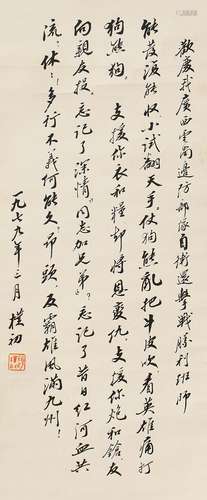 歡慶我廣西雲南邊防部隊自衛還擊戰勝利班師
能發還能收，小試翻天手。任狗熊亂把牛皮吹，看英雄痛打
狗熊狗　支援你衣和糧，却將恩變仇；支援你炮和鎗，反
向親友投。忘記了深情“同志加兄弟”；忘記了昔日紅河血共
流。休！休！多行不義何能久？昂頭，反霸雄風滿九州！
一九七九年三月　樸初